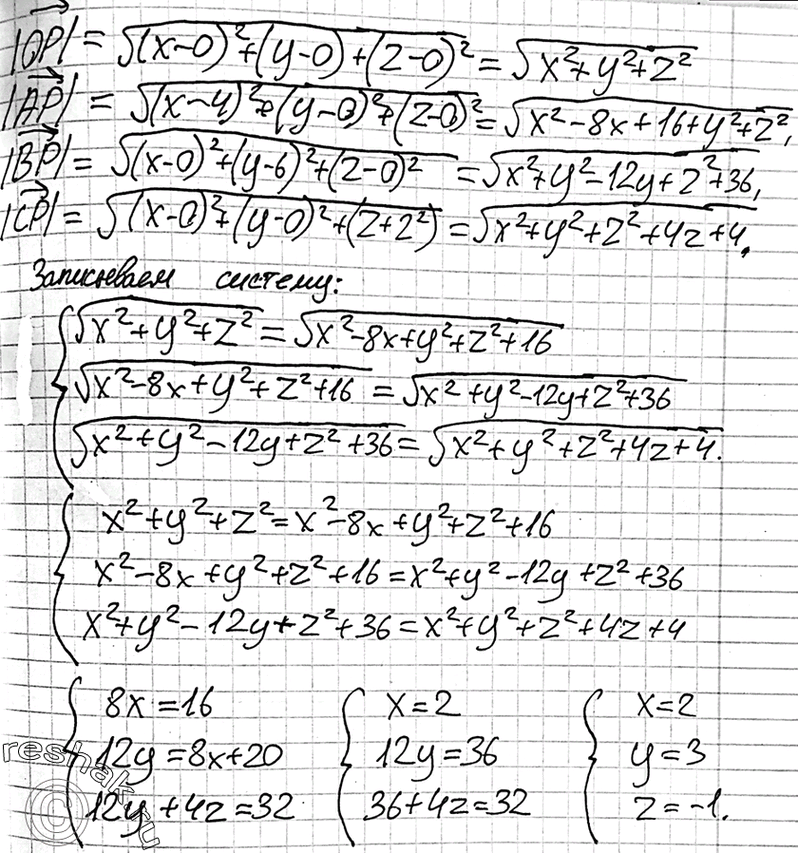 |OP| = √(x-0)²+(y-0)+(z-0)² = √x²+y²+z²
|AP| = √(x-4)²+(y-0)²+(z-0)² = √x²-8x+16+y²+z²,
|BP| = √(x-0)²+(y-6)²+(z-0)² = √x²+y²-12y+z²+36,
|CP| = √(x-0)²+(y-0)²+(z+2²) = √x²+y²+z²+4z+4.
Записываем систему:
√x²+y²+z² = √x²-8x+y²+z²+16
√x²-8x+y²+z²+16 = √x²+y²-12y+z²+36
√x²+y²-12y+z²+36 = √x²+y²+z²+4z+4.
x²+y²+z²=x²-8x+y²+z²+16
x²-8x+y²+z²+16=x²+y²-12y+z²+36
x²+y²-12y+z²+36=x²+y²+z²+4z+4
8x=16 x=2 x=2
12y=8x+20 12y=36 y=3
12y+4z=32 36+4z=32 z=-1.
reshak.ru
©